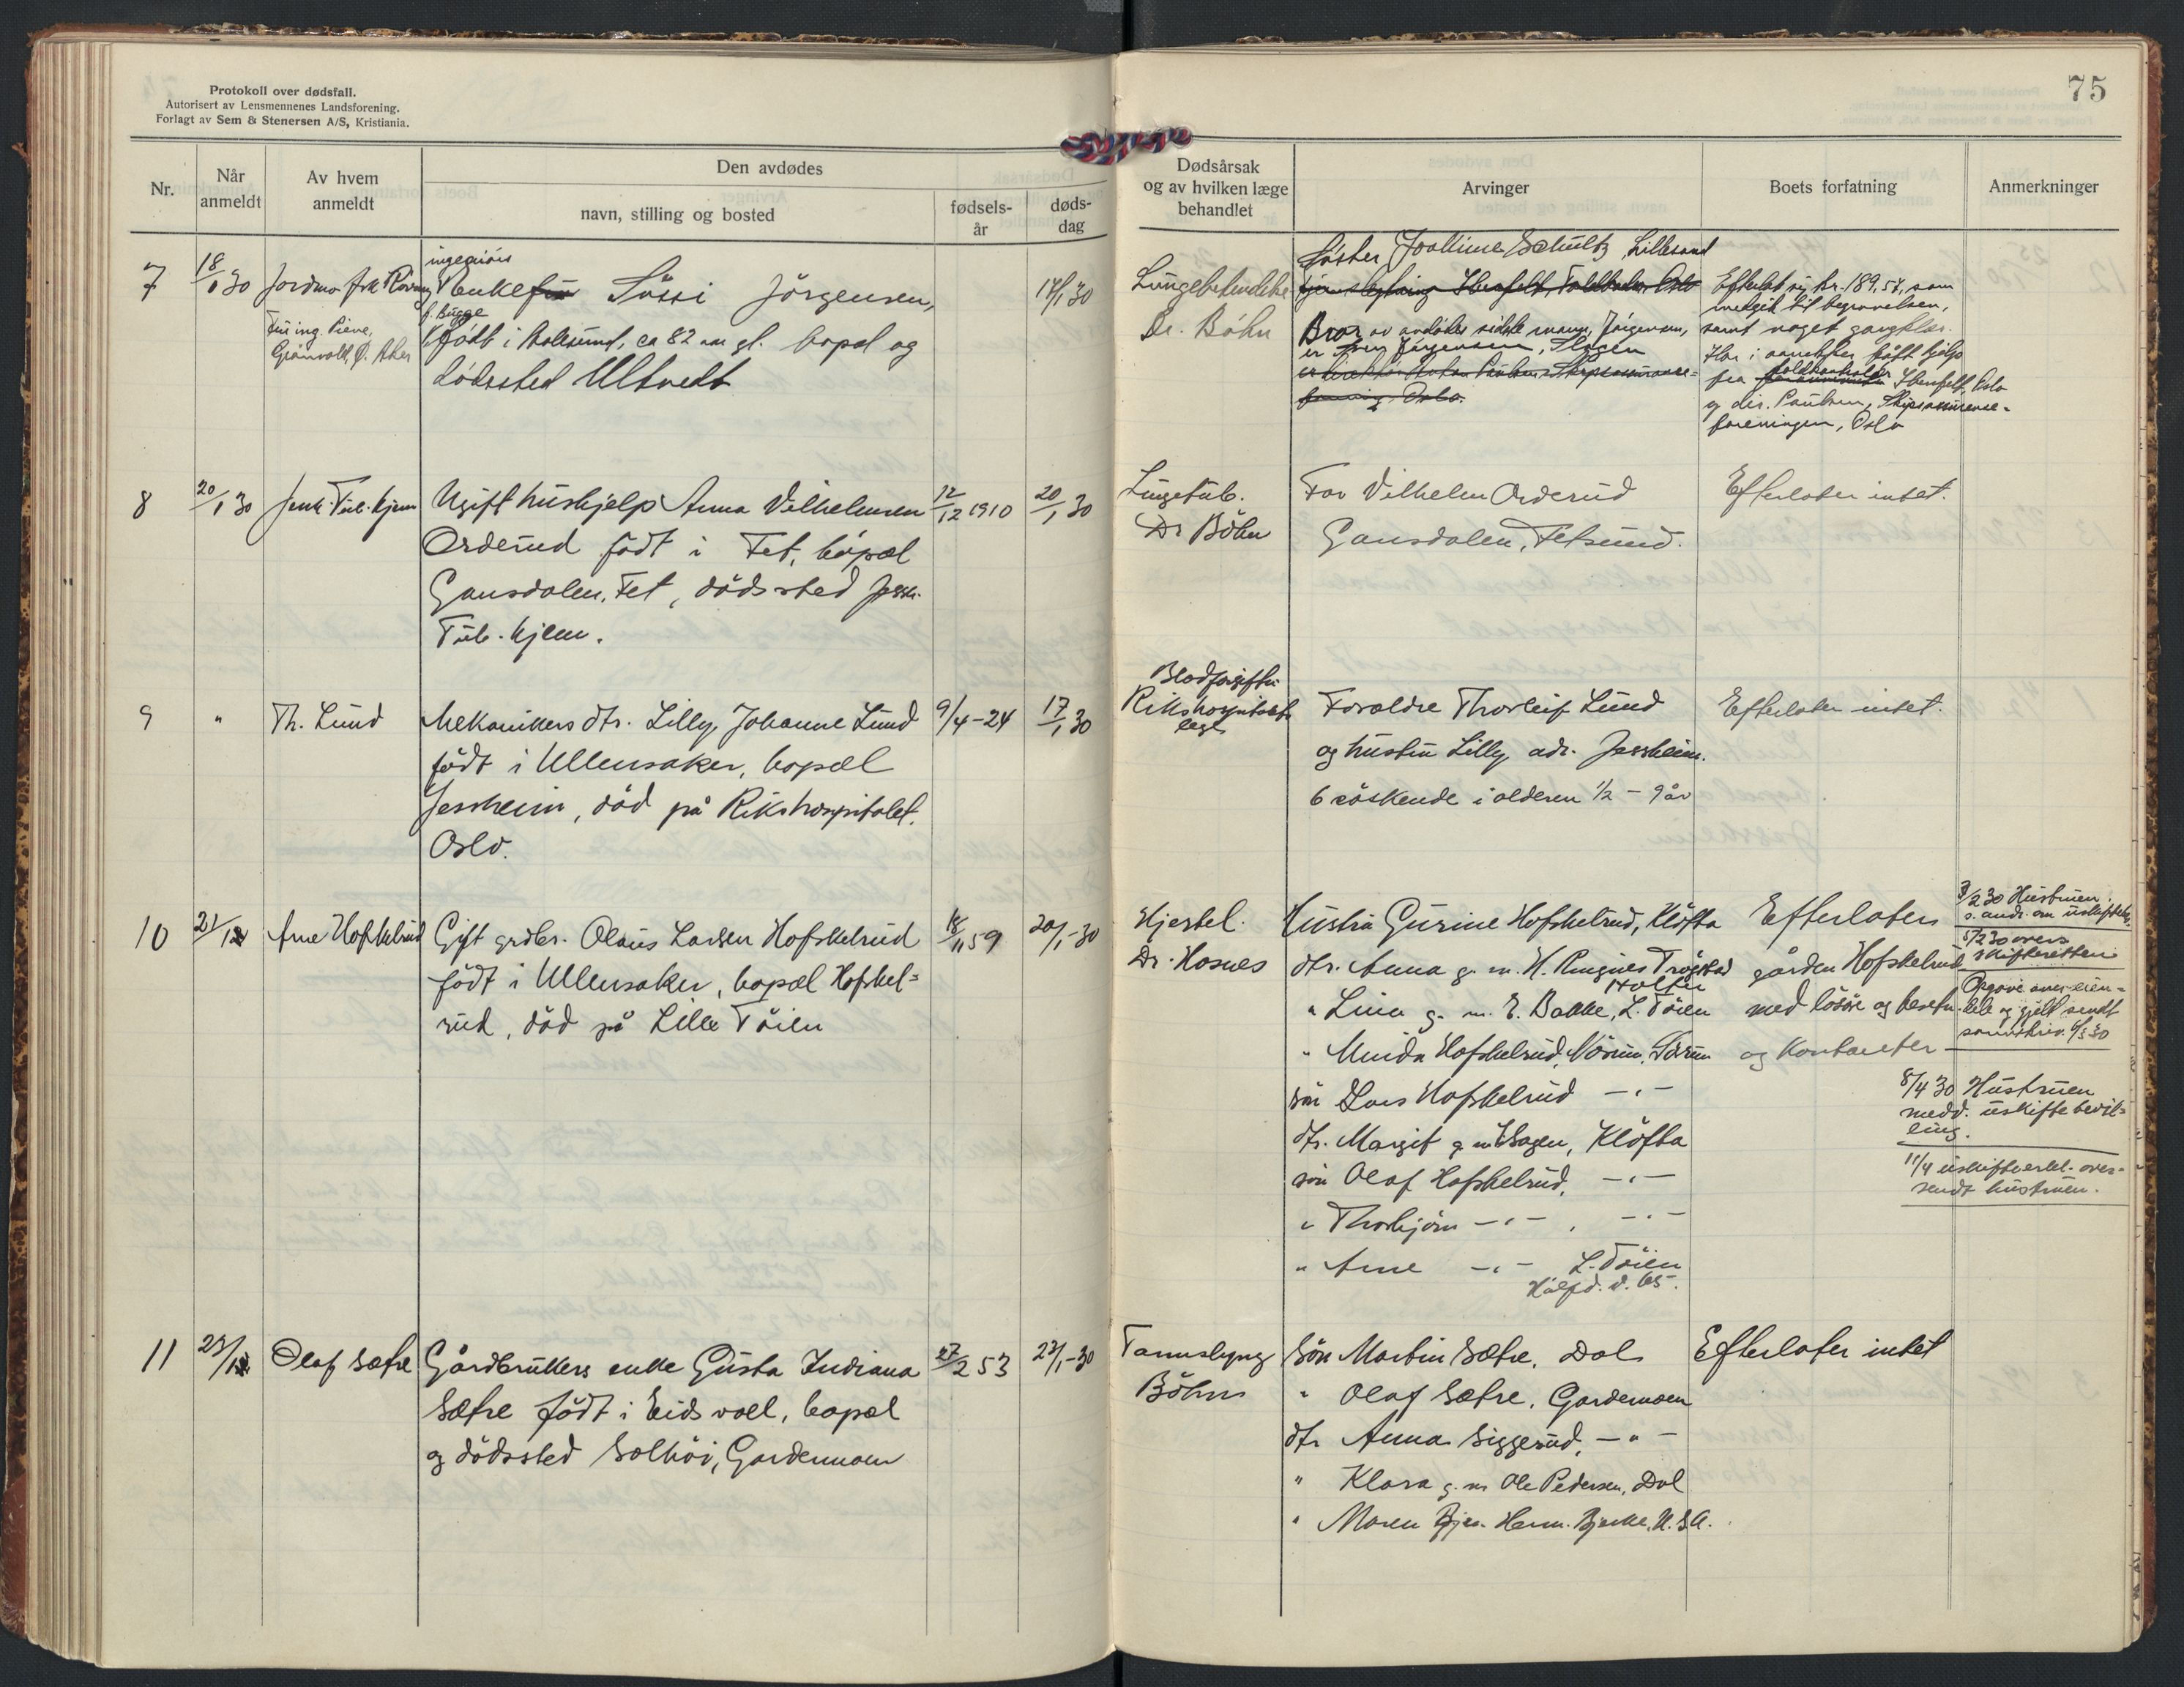 Protokoll over dødsfall.
Autorisert av Lensmennenes Landsforening.
Forlagt av Sem & Stenersen A/S, Kristiania.
75
Nr.
Når anmeldt
Av hvem anmeldt
Den avdødes
navn, stilling og bosted
fødsels-år
døds-dag
Dødsårsak og av hvilken læge behandlet
Arvinger
Boets forfatning
Anmerkninger
7
18/1 30
Jordmor frk
Fru ing.
Grönvold, Ø. Aker
ingeniörs
Enkefru Jörgensen,
f. Bugge
född i ca 82 aar gl. bopæl og
dödssted Ultvedt
17/1 30
Lungebetendelse
Dr. Böhn
Söster Schultz, Lillesand
Bror av avdödes sidste mann, Jörgensen,
er Jörgensen,
Efterlot sig kr. 189,54, som
medgik til begravelsen,
samt noget gangklær.
Har i faatt hjælp
fra Oslo
og dir. Paulsen, Skipsassuranse-
foreningen, Oslo
8
20/1 30
Jessh. Tub. hjem
Ugift hushjelp Anna Vilhelmsen
Orderud född i Fet, bopæl
Gansdalen, Fet, dödssted Jessh.
Tub. hjem.
12/12 1910
20/1 30
Lungetub.
Dr Böhn
Far Vilhelm Orderud
Gansdalen, Fetsund.
Efterlater intet.
9
"
Th. Lund
Mekanikers dtr. Lilly Johanne Lund
född i Ullensaker, bopæl
Jessheim, död på Rikshospitalet.
Oslo.
9/4-24
17/1 30
Blodforgiftn.
Rikshospitalets
læge
Foreldre Thorleif Lund
og hustru Lilly adr. Jessheim.
6 söskende i alderen 1/2 - 9 år
Efterlater intet.
10
21/1
Arne Hofskelrud
Gift grdbr. Olaus Larsen Hofskelrud
född i Ullensaker, bopæl Hofskel=
rud, död på Lille Töien
18/11 59
20/1-30
Hjertel.
Dr. Hosnes
Hustru Gurine Hofskelrud, Klöfta
dtr. Anna g. m. H. Ringnes Trögstad
Holter
" Lina g. m. E. Bakke, L. Töien
" Minda Hofskelrud,
sön Lars Hofskelrud -"-
dtr. Margit g. m. Hagen, Klöfta
sön Olaf Hofskelrud, -"-
" Thorbjörn -"-, -"-
" Arne -"- L. Töien
Efterlater
gården Hofskelrud
med lösöre og besetn.
og kontanter
3/2 30 Hustruen
s. andr. om uskiftebev.
5/2 30 overs.
skifteretten
Opgave over eien=
dele og gjeld sendt
sorenskriv. 6/3 30
8/4 30 Hustruen
medd. uskiftebevil=
ling.
11/4 uskifteerkl. over=
sendt hustruen.
11
23/1
Olaf Sætre
Gårdbrukers enke Gusta Indiana
Sætre född i Eidsvoll, bopæl
og dödssted Solhöi, Gardermoen
27/2 53
23/1-30
Böhn
Sön Martin Sætre, Dal
" Olaf Sætre, Gardermoen
dtr Anna Siggerud, -"-
" Klara g. m. Ole Pedersen, Dal
" Maren Herm. Bjerke, U.S.A.
Efterlater intet